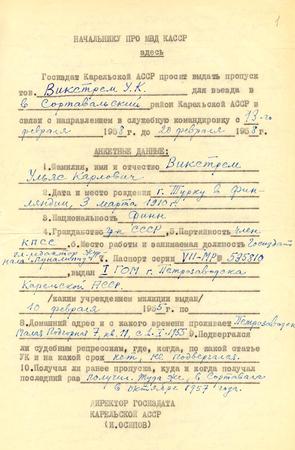 1
НАЧАЛЬНИКУ ПРО МВД КАССР
здесь
Госиздат Карельской АССР просит выдать пропуск
тов. Викстрем У.К. для въезда в
в Сортавальский район Карельской АССР в
связи с направлением в служебную командировку с 13-го
февраля 1958 г. до 20 февраля 1958 г.
АНКЕТНЫЕ ДАННЫЕ:
1. Фамилия, имя и отчество Викстрем
Ульяс Карлович
2. Дата и место рождения г. Турку в Фин-
ляндии, 3 марта 1910 г.
3. Национальность Финн
4. Гражданство СССР 5. Партийность член
КПСС 6. Место работы и занимаемая должность Госиздат
гл. редактор
нала „Пуналиппу" 7. Паспорт серии VIII-МР № 575810
, выдан I ГОМ г. Петрозаводска
Карельской АССР.
/каким учреждением милиции выдан/
10 февраля 1955 г. по
8. Домашний адрес и с какого времени проживает Петрозаводск
7, кв. 11, с 1955 9. Подвергался
ли судебным репрессиям, где, когда, по какой статье
УК и на какой срок нет, не подвергался.
10. Получал ли ранее пропуска, куда и когда получал
последний раз получил туда же, в Сортавала
в октябре 1957 года.
ДИРЕКТОР ГОСИЗДАТА
КАРЕЛЬСКОЙ АССР
(И. ОСИПОВ)